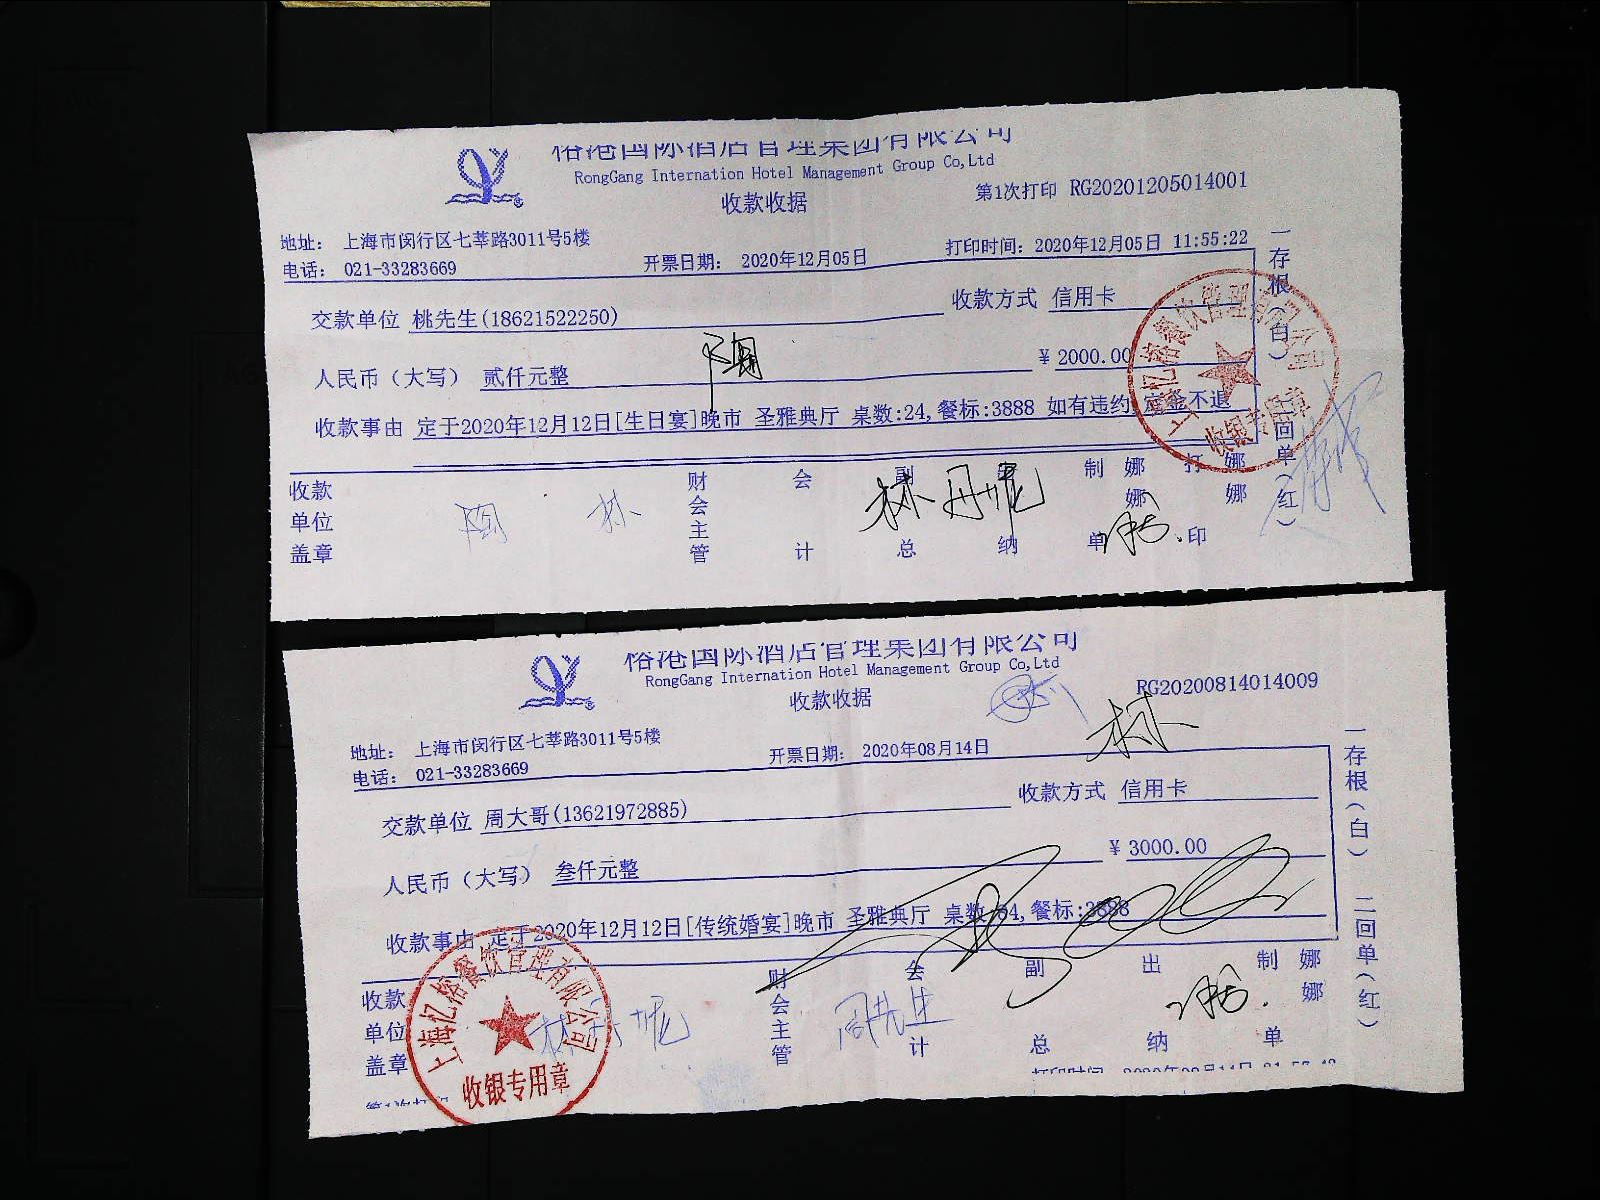 裕港国际酒店管理集团有限公司
RongGang Internation Hotel Management Group Co,Ltd
收款收据
第1次打印 RG20201205014001
地址： 上海市闵行区七莘路3011号5楼
电话： 021-33283669
开票日期： 2020年12月05日
打印时间：2020年12月05日 11:55:22
交款单位 桃先生(18621522250)
收款方式 信用卡
人民币（大写） 贰仟元整
￥2000.00
收款事由 定于2020年12月12日[生日宴]晚市 圣雅典厅 桌数:24,餐标:3888 如有违约,定金不退
一存根（白） 二回单（红）
收款单位盖章
财会主管
会计
副总
出纳
制单
娜娜
打印
娜娜
陶
林
林丹妮
上海忆榕餐饮管理有限公司
收银专用章
裕港国际酒店管理集团有限公司
RongGang Internation Hotel Management Group Co,Ltd
收款收据
RG20200814014009
林
地址： 上海市闵行区七莘路3011号5楼
电话： 021-33283669
开票日期： 2020年08月14日
交款单位 周大哥(13621972885)
收款方式 信用卡
人民币（大写） 叁仟元整
￥3000.00
收款事由 定于2020年12月12日[传统婚宴]晚市 圣雅典厅 桌数:34,餐标:3888
一存根（白） 二回单（红）
收款单位盖章
财会主管
会计
副总
出纳
制单
娜娜
林丹妮
周先生
上海忆榕餐饮管理有限公司
收银专用章
第1次打印
打印时间